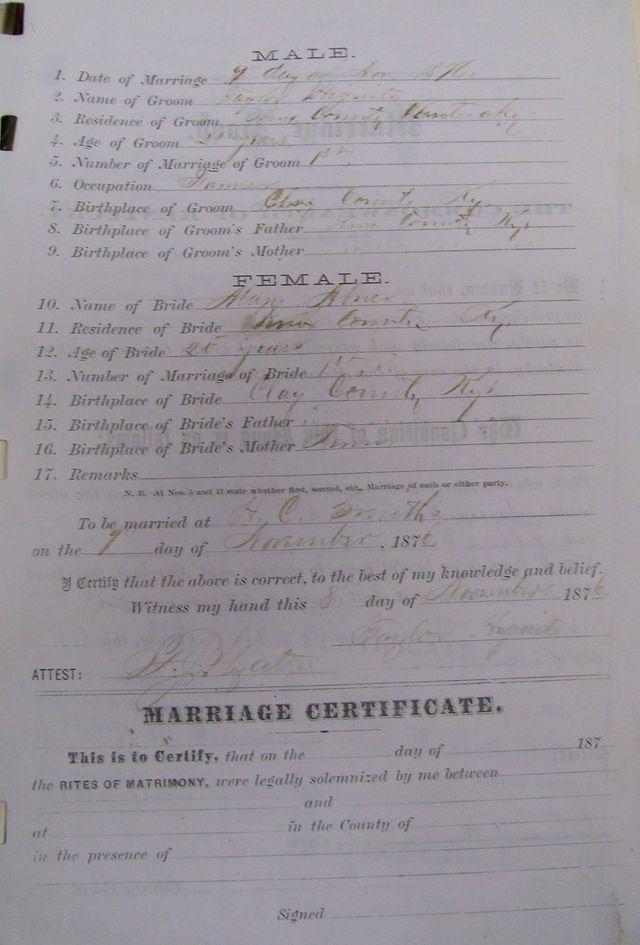 MALE.
1. Date of Marriage 9 day of Nov. 1876
2. Name of Groom Taylor Hignite
3. Residence of Groom Knox County Kentucky
4. Age of Groom years
5. Number of Marriage of Groom 1st
6. Occupation Farmer
7. Birthplace of Groom Clay County Ky
8. Birthplace of Groom's Father Knox County Ky
9. Birthplace of Groom's Mother
FEMALE.
10. Name of Bride Mary Abner
11. Residence of Bride Knox County Ky.
12. Age of Bride 25 years
13. Number of Marriage of Bride 1st
14. Birthplace of Bride Clay County Ky
15. Birthplace of Bride's Father
16. Birthplace of Bride's Mother
17. Remarks
N. B. At Nos. 5 and 13 state whether first, second, etc., Marriage of each or either party.
To be married at H. C. Smiths
on the 9 day of November, 1876
I Certify that the above is correct, to the best of my knowledge and belief.
Witness my hand this 8 day of November 1876
Taylor Hignite
ATTEST:
MARRIAGE CERTIFICATE.
This is to Certify, that on the day of 187
the RITES OF MATRIMONY, were legally solemnized by me between
and
at in the County of
in the presence of
Signed